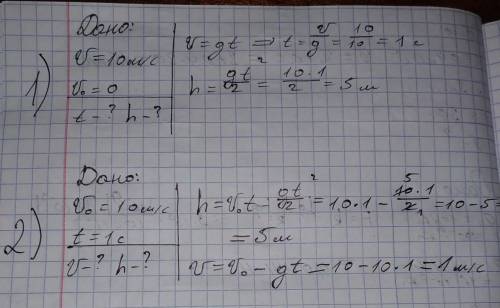 1)
Дано:
v = 10 м/с
v₀ = 0
t - ? h - ?
v = gt ⇒ t = v/g = 10/10 = 1 с
h = gt²/2 = 10·1/2 = 5 м
2)
Дано:
v₀ = 10 м/с
t = 1 с
v - ? h - ?
h = v₀t - gt²/2 = 10·1 - 10·1/2 = 10 - 5 =
= 5 м
v = v₀ - gt = 10 - 10·1 = 1 м/с